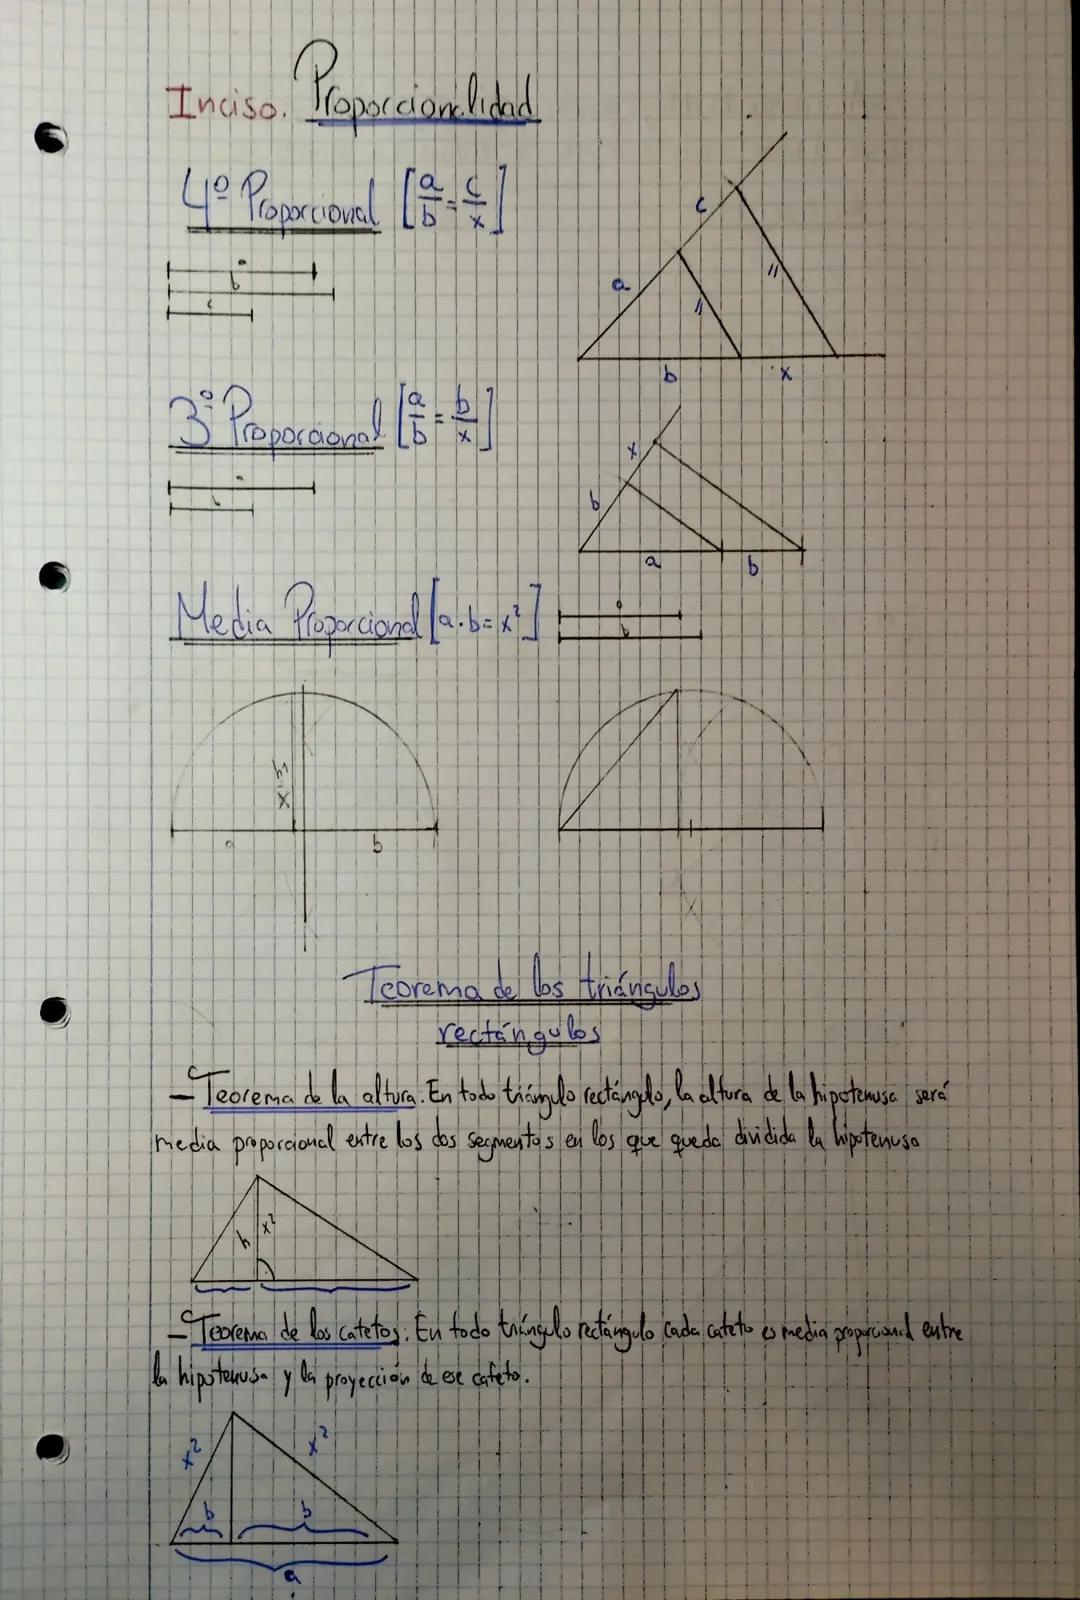 Inciso. Proporcionalidad
4º Proporcional [a/b = c/x]
a
b
c
a
c
//
//
b
x
3º Proporcional [a/b = b/x]
a
b
x
b
a
b
Media Proporcional [a·b = x²]
a
b
a
b
Teorema de los triángulos
rectángulos
- Teorema de la altura. En todo triángulo rectángulo, la altura de la hipotenusa será
media proporcional entre los dos segmentos en los que queda dividida la hipotenusa
h
x²
- Teorema de los catetos. En todo triángulo rectángulo cada cateto es media proporcional entre
la hipotenusa y la proyección de ese cateto.
x²
x²
b
b
a